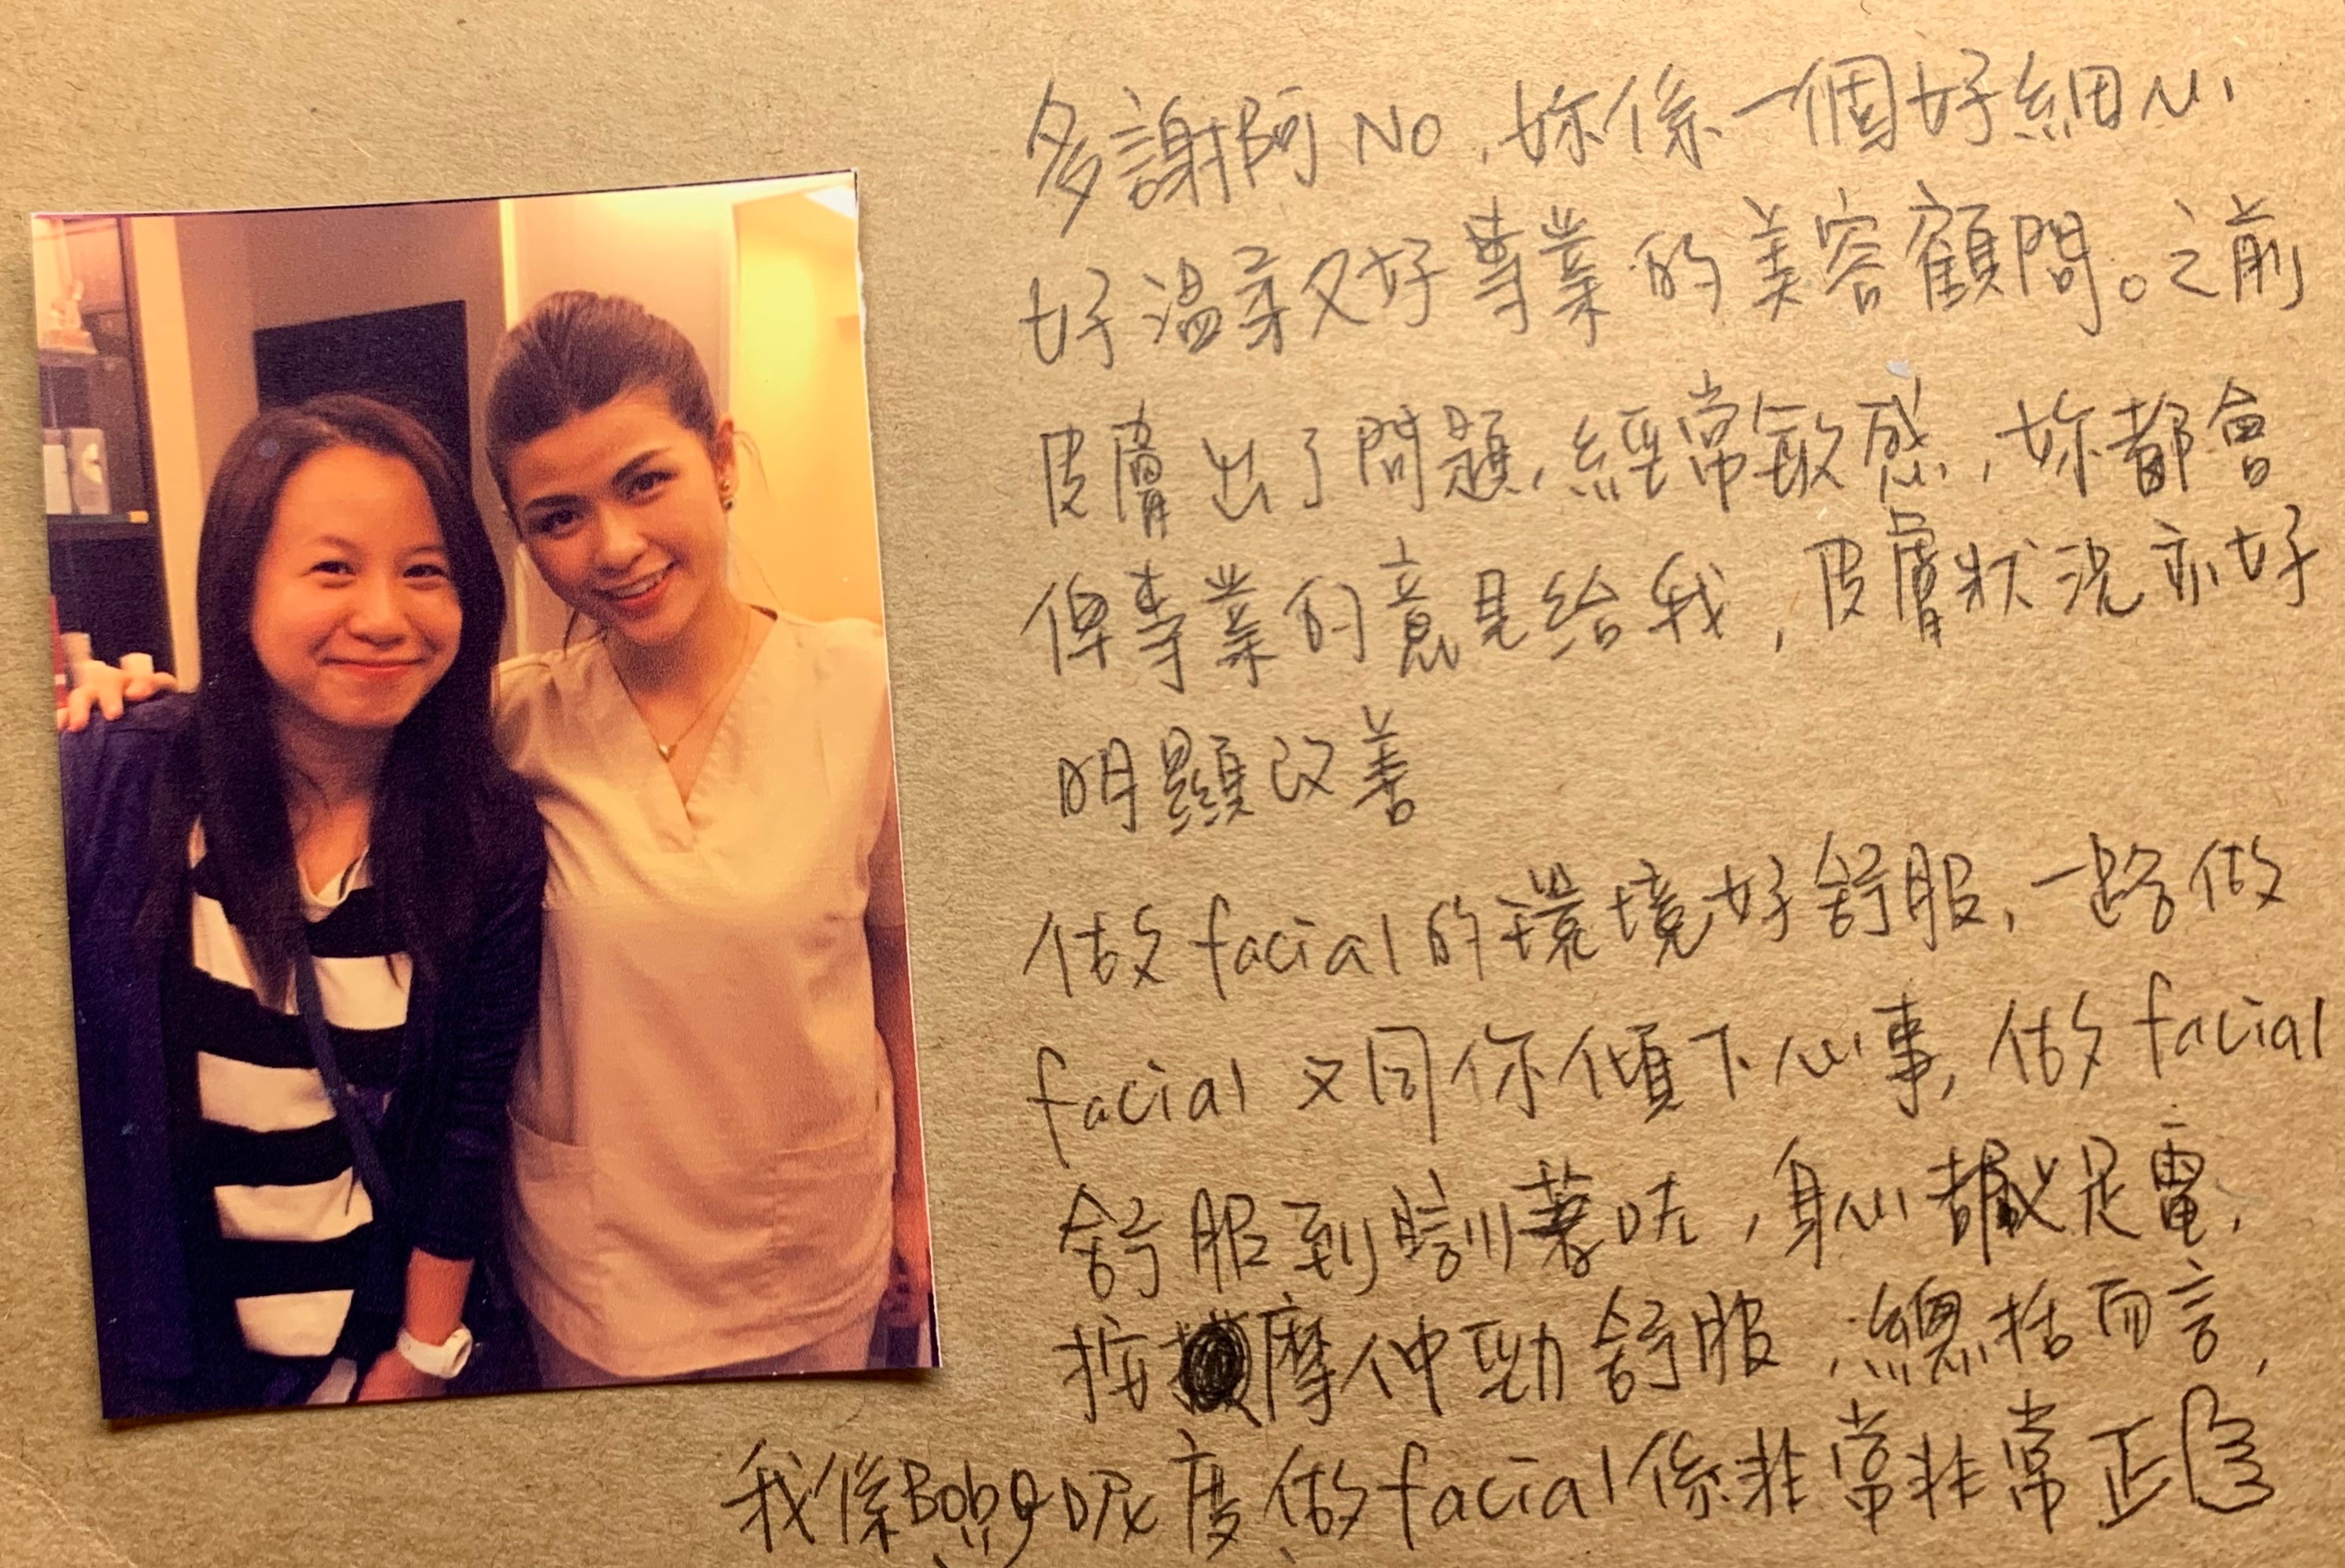 多謝阿No,妳係一個好細心
好溫柔又好專業的美容顧問。之前
皮膚出了問題,經常敏感,妳都會
俾專業的意見給我,皮膚狀況亦好
明顯改善
做facial的環境好舒服,一路做
facial又同你傾下心事,做facial
舒服到瞓著咗,身心都是電,
按摩仲勁舒服,總括而言,
我係Bobo呢度做facial係非常非常正